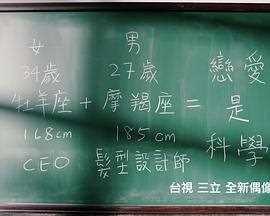 女 男
34歲 27歲 戀愛
牡羊座 + 摩羯座 = 是
168cm 185cm 科學
CEO 髮型設計師
台視 三立 全新偶像